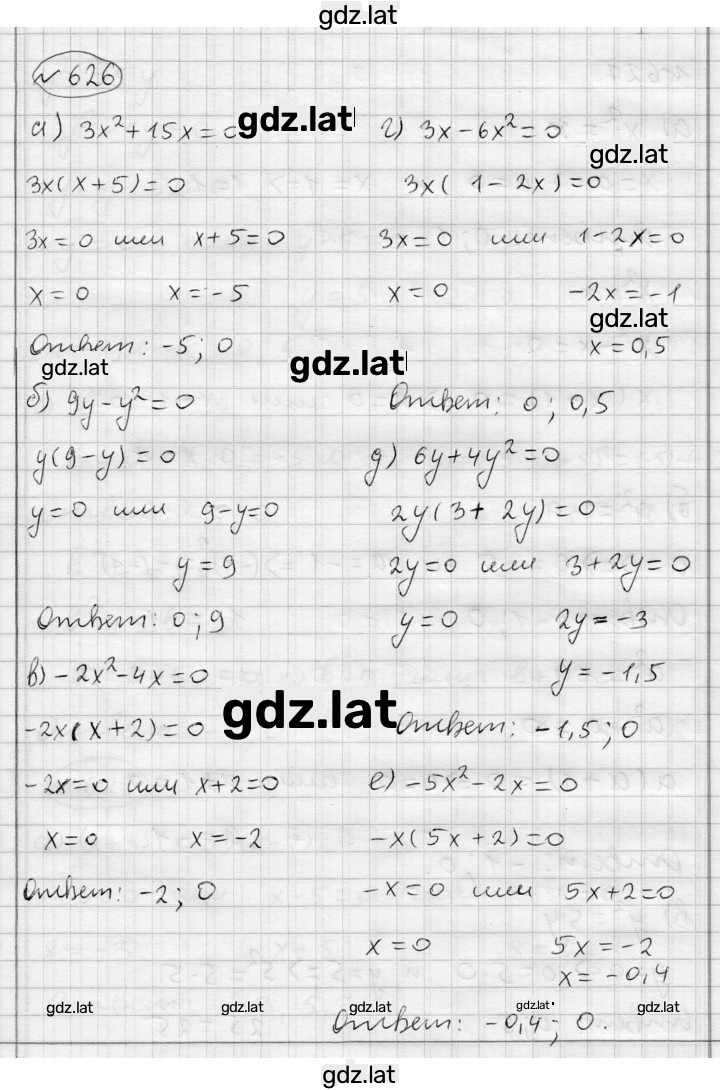 gdz.lat
№ 626
а) 3x²+15x=0
gdz.lat
3x(x+5)=0
3x=0 или x+5=0
x=0 x=-5
Ответ: -5; 0
gdz.lat
б) 9y-y²=0
y(9-y)=0
y=0 или 9-y=0
y=9
Ответ: 0; 9
в) -2x²-4x=0
-2x(x+2)=0
-2x=0 или x+2=0
x=0 x=-2
Ответ: -2; 0
г) 3x-6x²=0
gdz.lat
3x(1-2x)=0
3x=0 или 1-2x=0
x=0 -2x=-1
gdz.lat
x=0,5
gdz.lat
Ответ: 0; 0,5
д) 6y+4y²=0
2y(3+2y)=0
2y=0 или 3+2y=0
y=0 2y=-3
y=-1,5
gdz.lat
Ответ: -1,5; 0
е) -5x²-2x=0
-x(5x+2)=0
-x=0 или 5x+2=0
x=0 5x=-2
x=-0,4
gdz.lat gdz.lat gdz.lat gdz.lat gdz.lat
Ответ: -0,4; 0.
gdz.lat